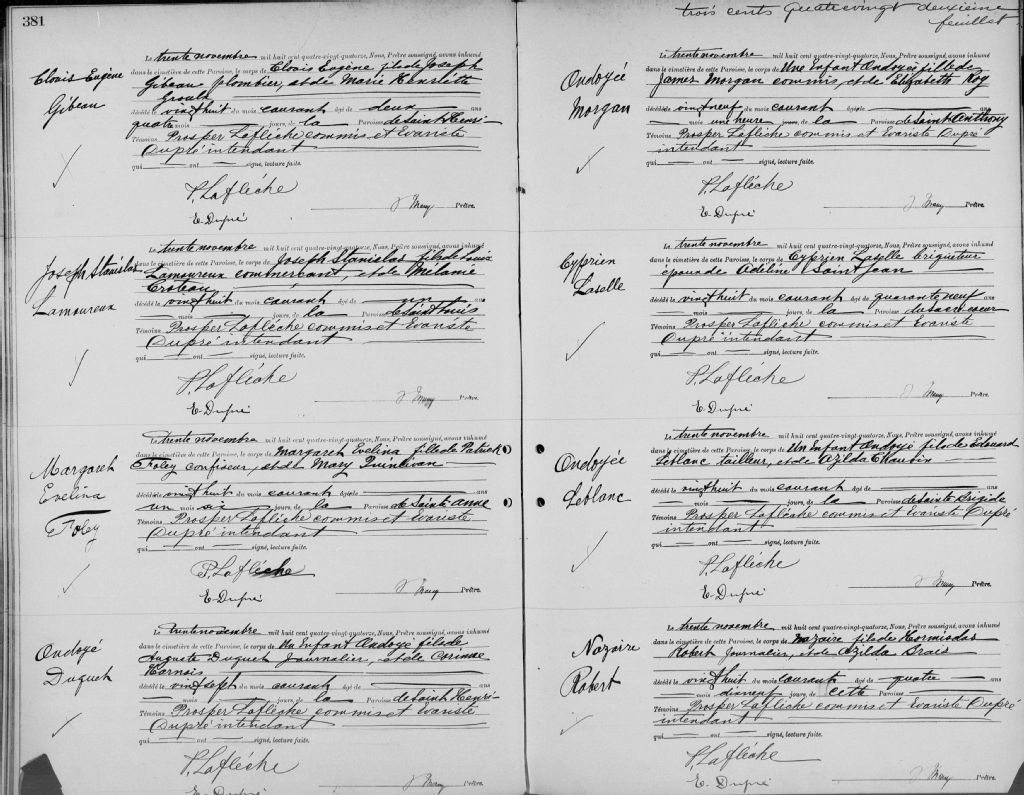 381
Clovis Eugène
Gibeau
Le trente novembre mil huit cent quatre-vingt-quatorze, Nous, Prêtre soussigné, avons inhumé
dans le cimetière de cette Paroisse, le corps de Clovis Eugène fils de Joseph
Gibeau plombier, et de Marie Henriette
Giroux
décédé le vingt huit du mois courant âgé de deux ans
quatre mois jours, de la Paroisse de Saint Henri
Témoins Prosper Lafléche commis et Evariste
Dupré intendant
qui ont signé, lecture faite.
P. Lafléche
E. Dupré
Prêtre.
Joseph Stanislas
Lamoureux
Le trente novembre mil huit cent quatre-vingt-quatorze, Nous, Prêtre soussigné, avons inhumé
dans le cimetière de cette Paroisse, le corps de Joseph Stanislas fils de Louis
Lamoureux commerçant, et de Mélanie
décédé le vingt huit du mois courant âgé de un ans
mois jours, de la Paroisse de Saint Louis
Témoins Prosper Lafléche commis et Evariste
Dupré intendant
qui ont signé, lecture faite.
P. Lafléche
E. Dupré
Prêtre.
Margaret
Evelina
Foley
Le trente novembre mil huit cent quatre-vingt-quatorze, Nous, Prêtre soussigné, avons inhumé
dans le cimetière de cette Paroisse, le corps de Margaret Evelina fille de Patrick
Foley confiseur, et de Mary
décédé vingt huit du mois courant âgé de ans
un mois six jours, de la Paroisse de Sainte Anne
Témoins Prosper Lafléche commis et Evariste
Dupré intendant
qui ont signé, lecture faite.
P. Lafléche
E. Dupré
Prêtre.
Ondoyé
Duquet
Le trente novembre mil huit cent quatre-vingt-quatorze, Nous, Prêtre soussigné, avons inhumé
dans le cimetière de cette Paroisse, le corps de Un Enfant Ondoyé fils de
Auguste Duquet Journalier, et de Corinne
Harnois
décédé le vingt sept du mois courant âgé de ans
mois jours, de la Paroisse de Saint Henri
Témoins Prosper Lafléche commis et Evariste
Dupré intendant
qui ont signé, lecture faite.
P. Lafléche
E. Dupré
Prêtre.
trois cents Quatrevingt deuxième
feuillet
Ondoyée
Morgan
Le trente novembre mil huit cent quatre-vingt-quatorze, Nous, Prêtre soussigné, avons inhumé
dans le cimetière de cette Paroisse, le corps de Un Enfant Ondoyée fille de
James Morgan commis, et de Elizabeth Roy
décédé le vingt neuf du mois courant âgé de ans
mois une heure jours, de la Paroisse de Saint Anthony
Témoins Prosper Lafléche commis et Evariste Dupré
intendant
qui ont signé, lecture faite.
P. Lafléche
E. Dupré
Prêtre.
Cyprien
Laselle
Le trente novembre mil huit cent quatre-vingt-quatorze, Nous, Prêtre soussigné, avons inhumé
dans le cimetière de cette Paroisse, le corps de Cyprien Laselle briqueteur
époux de Adeline Saint Jean
décédé le vingt huit du mois courant âgé de quarante neuf ans
mois jours, de la Paroisse du Sacré coeur
Témoins Prosper Lafléche commis et Evariste
Dupré intendant
qui ont signé, lecture faite.
P. Lafléche
E. Dupré
Prêtre.
Ondoyée
Leblanc
Le trente novembre mil huit cent quatre-vingt-quatorze, Nous, Prêtre soussigné, avons inhumé
dans le cimetière de cette Paroisse, le corps de Un Enfant Ondoyé fils de Edouard
Leblanc tailleur, et de Azilda Chauvin
décédé le vingt huit du mois courant âgé de ans
mois jours, de la Paroisse de Sainte Brigide
Témoins Prosper Lafléche commis et Evariste Dupré
intendant
qui ont signé, lecture faite.
P. Lafléche
E. Dupré
Prêtre.
Nazaire
Robert
Le trente novembre mil huit cent quatre-vingt-quatorze, Nous, Prêtre soussigné, avons inhumé
dans le cimetière de cette Paroisse, le corps de Nazaire fils de Hormisdas
Robert Journalier, et de Azilda Brais
décédé le vingt huit du mois courant âgé de quatre ans
mois dixneuf jours, de cette Paroisse
Témoins Prosper Lafléche commis et Evariste Dupré
intendant
qui ont signé, lecture faite.
P. Lafléche
E. Dupré
Prêtre.